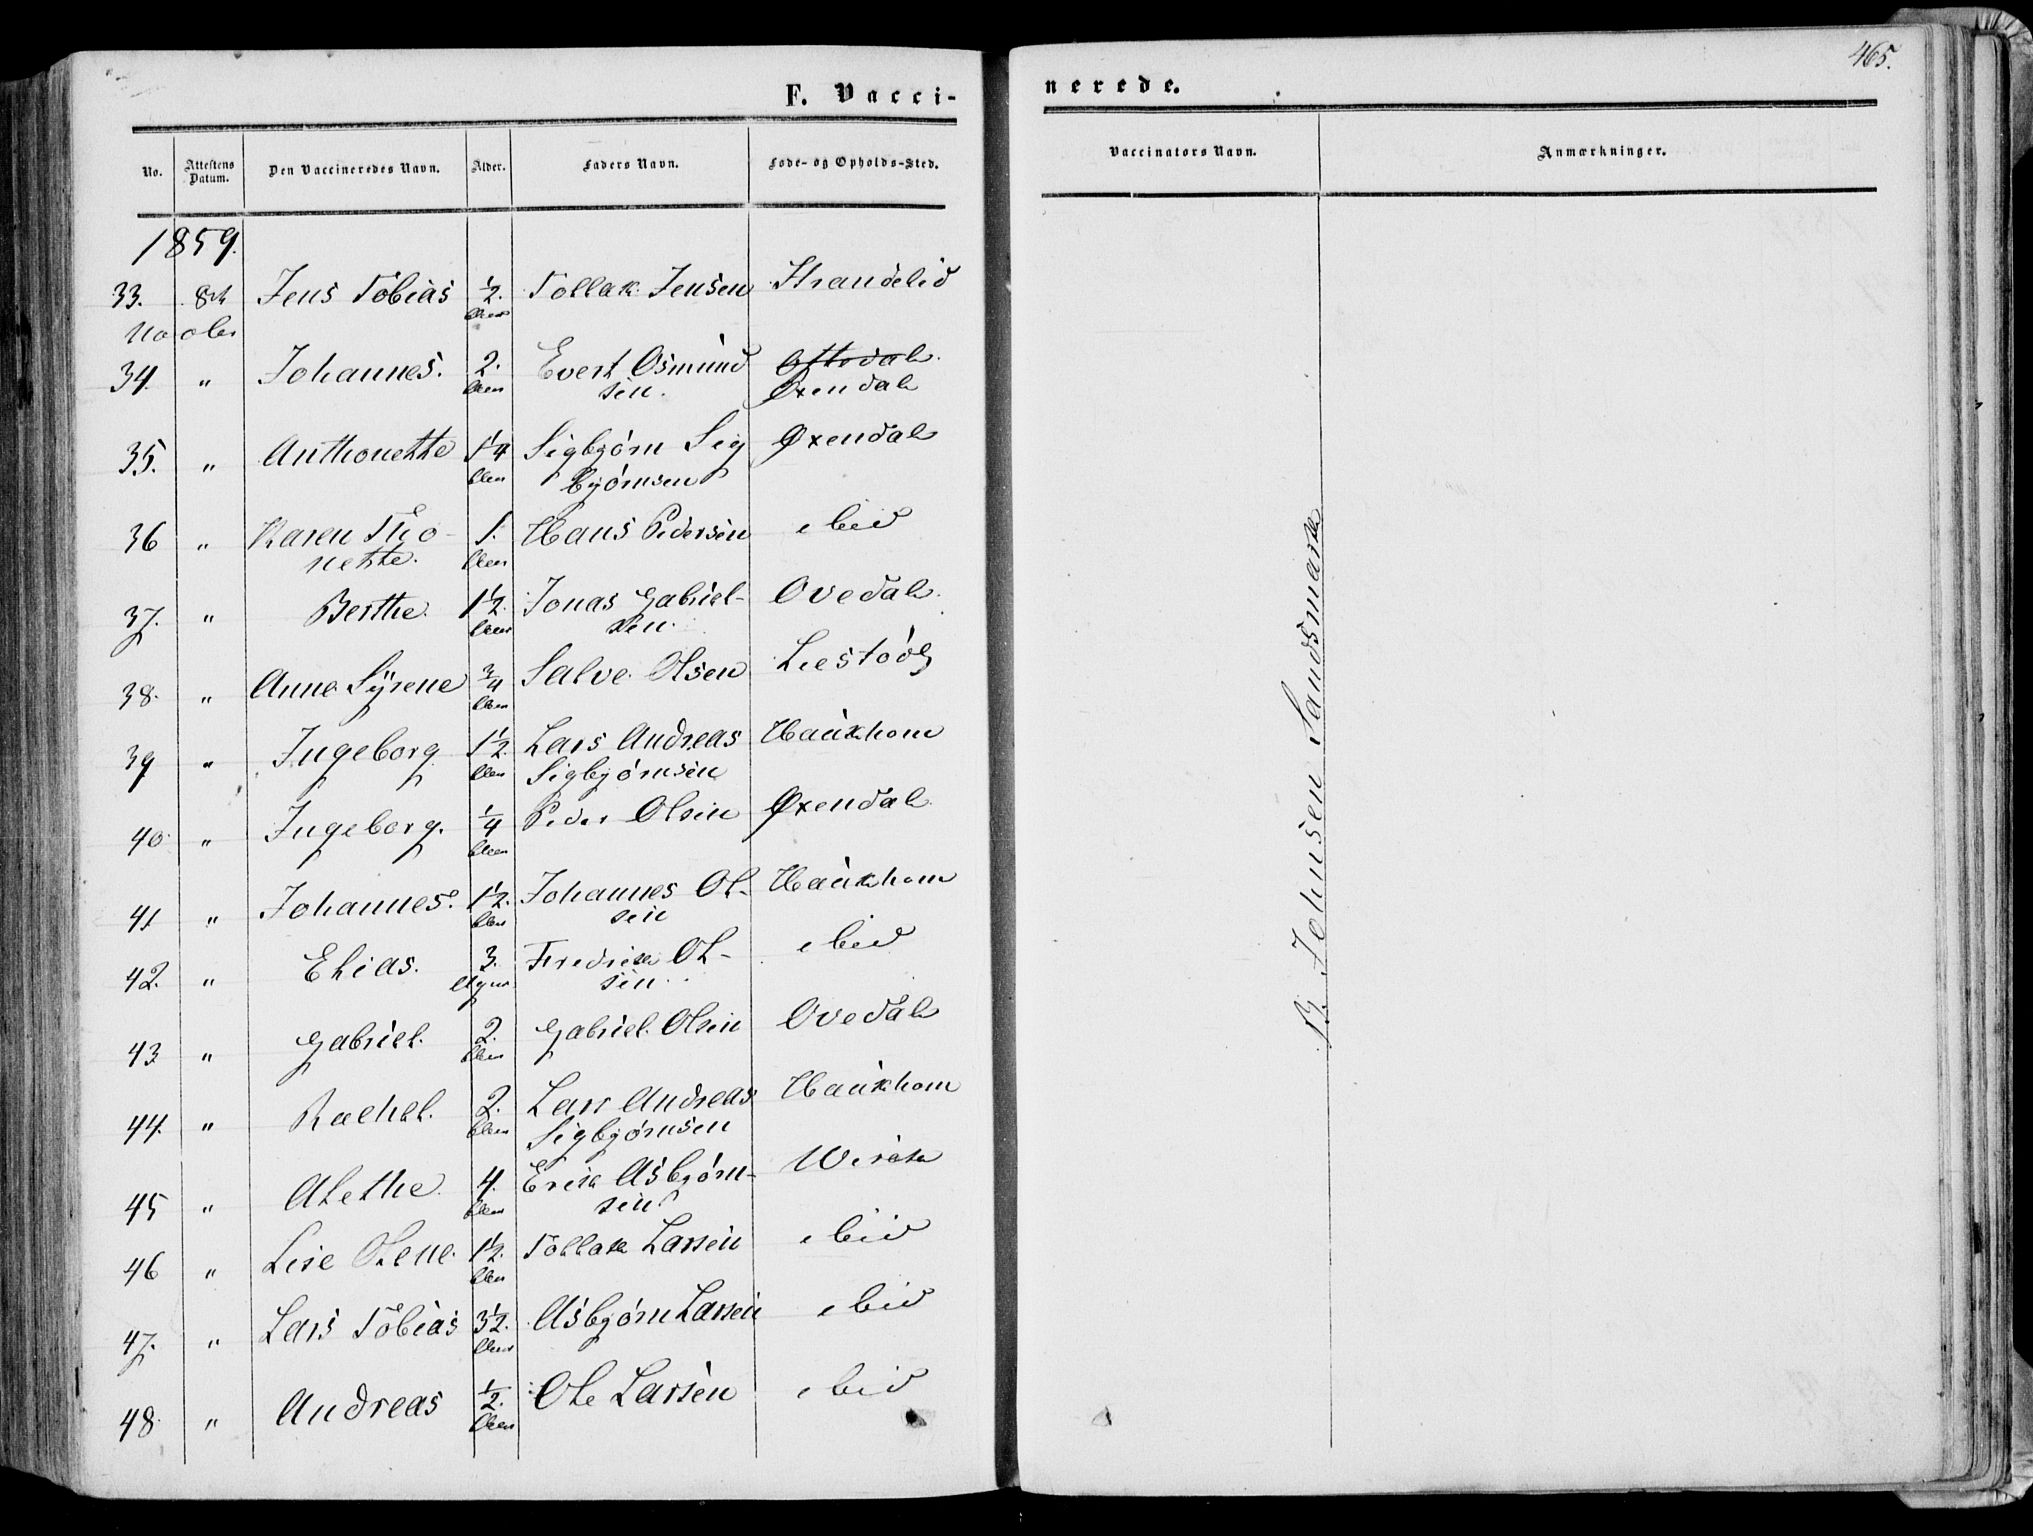 465.
F. Vacci-
nerede.
No. Attestens Datum. Den Vaccineredes Navn. Alder. Faders Navn. Føde- og Opholds-Sted.
Vaccinators Navn. Anmærkninger.
1859.
33. 8de Jens Tobias 1/2. Tollak Jensen Strandelid
Aar
Octobr
34. " Johannes. 2. Evert Osmund
Aar sen. Øxendal
35. " Anthonette 1 1/4 Sigbjørn Sig Øxendal
Aar bjørnsen
36 " Karen Tho- 1. Hans Pedersen ibid
nette. Aar
37. " Berthe. 1 1/2. Jonas Gabriel- Ovedal.
Aar sen.
38. " Anne Syrene 3/4 Salve Olsen Liestøl
Aar
39 " Ingeborg 1 1/2. Lars Andreas Haukhom
Aar Sigbjørnsen
40. " Ingeborg. 1/4 Peder Olsen Øxendal.
Aar
41 " Johannes. 1 1/2. Johannes Ol- Haukhom
Aar sen
42. " Elias. 3. Fredrik Ol- ibid
sen.
43 " Gabriel. 2. Gabriel Olsen Ovedal
Aar
44. " Rachel. 2. Lars Andreas Haukhom
Aar Sigbjørnsen
45 " Alethe. 4. Erik Asbjørn- Wirak
Aar sen
46 " Lise Olene. 1 1/2. Tollak Larsen ibid
Aar
47. " Lars Tobias 3 1/2. Asbjørn Larsen ibid
Aar
48. " Andreas 1/2. Ole Larsen ibid
Aar
B. Johnsen Sandsmark